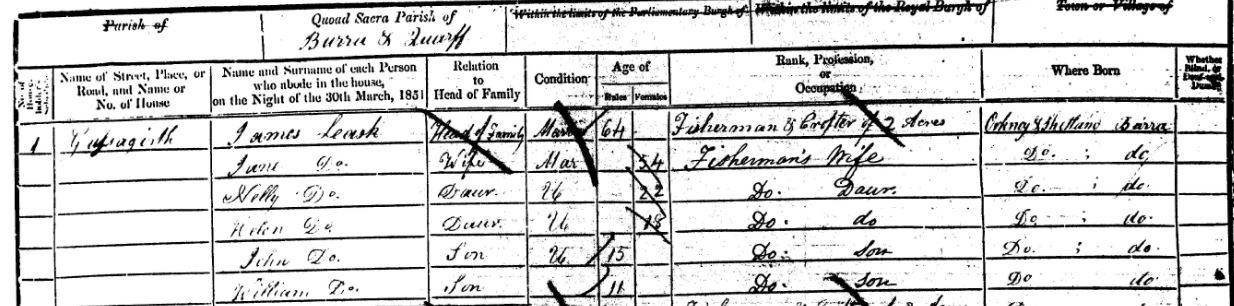 Parish of
Quoad Sacra Parish of
Burra & Quarff
Within the limits of the Parliamentary Burgh of
Within the limits of the Royal Burgh of
Town or Village of
No. of
Name of Street, Place, or Road, and Name or No. of House
Name and Surname of each Person who abode in the house, on the Night of the 30th March, 1851
Relation to Head of Family
Condition
Age of
Males Females
Rank, Profession, or Occupation
Where Born
Whether Blind, or Deaf-and-Dumb
1 James Leask Head of Family Mar 64 Fisherman & Crofter of 2 Acres Orkney & Shetland Burra
Jane Do. Wife Mar 54 Fisherman's Wife Do. ; do
Nelly Do. Daur. U 22 Do. Daur. Do. ; do.
Helen Do Daur. U 18 Do. do Do ; do.
John Do. Son U 15 Do. son Do. ; do.
William Do. Son 11 Do. son Do do.